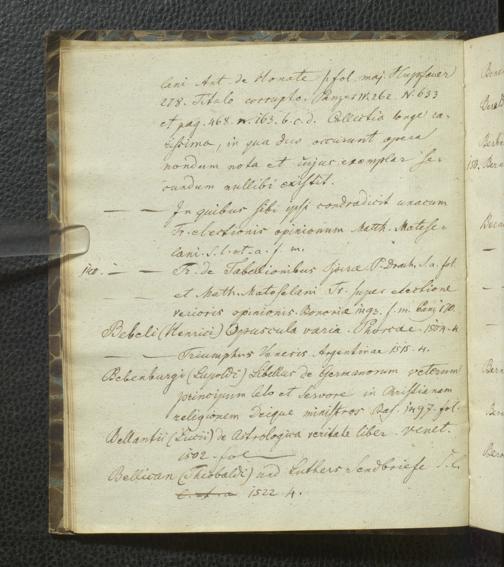 lani Ant. de Honate s. fol. maj. Hupfauer
278. Titulo corrupto. Panzer IV. 262. N. 633
et pag. 468. n. 163. b. c. d. Collectio longe ra-
rissima, in qua duo occurunt opera
nondum nota et cujus exemplar se-
cundum nullibi existit.
— — In quibus sibi ipsi contradicit unacum
Tr. electionis opinionum Math. Matese-
lani. S. l. et. a. f. m.
— — Tr. de Tabellionibus Spirae P. Drach. S. a. fol
et Math. Mateselani Tr. super electione
verioris opinionis. Bononiae 1493. f. m.
Bebeli (Henrici) Opuscula varia. Phorcae. 1504. 4
— Triumphus Veneris. Argentinae 1515. 4.
Bebenburgi (Lupoldi) Libellus de Germanorum veterum
principum zelo et fervore in Christianam
religionem Deique ministros Bas. 1497. fol.
Bellantii (Lucii) de Astrologica veritate liber. Venet.
1502. fol
Bellican (Theobaldi) und Luthers Sendbriefe S. l.
1522 4.